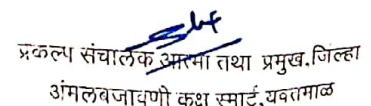 प्रकल्प संचालक आत्मा तथा प्रमुख.जिल्हा
अंमलबजावणी कक्ष स्मार्ट,यवतमाळ